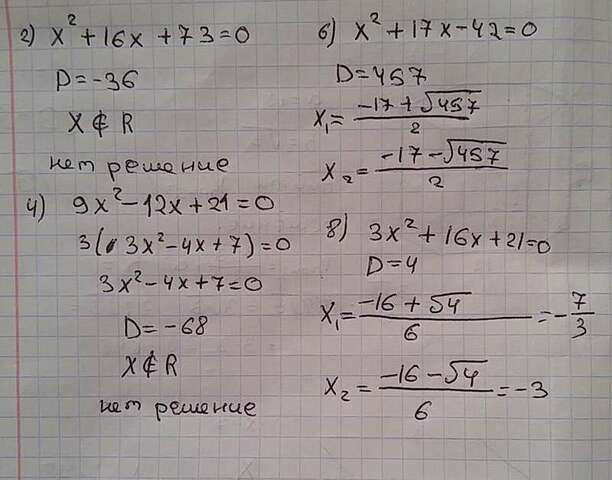 2) x² + 16x + 73 = 0
D = -36
X ∉ R
нет решение
4) 9x² - 12x + 21 = 0
3(3x² - 4x + 7) = 0
3x² - 4x + 7 = 0
D = -68
X ∉ R
нет решение
6) x² + 17x - 42 = 0
D = 457
x₁ = (-17 + √457)/2
x₂ = (-17 - √457)/2
8) 3x² + 16x + 21 = 0
D = 4
x₁ = (-16 + √4)/6 = -7/3
x₂ = (-16 - √4)/6 = -3